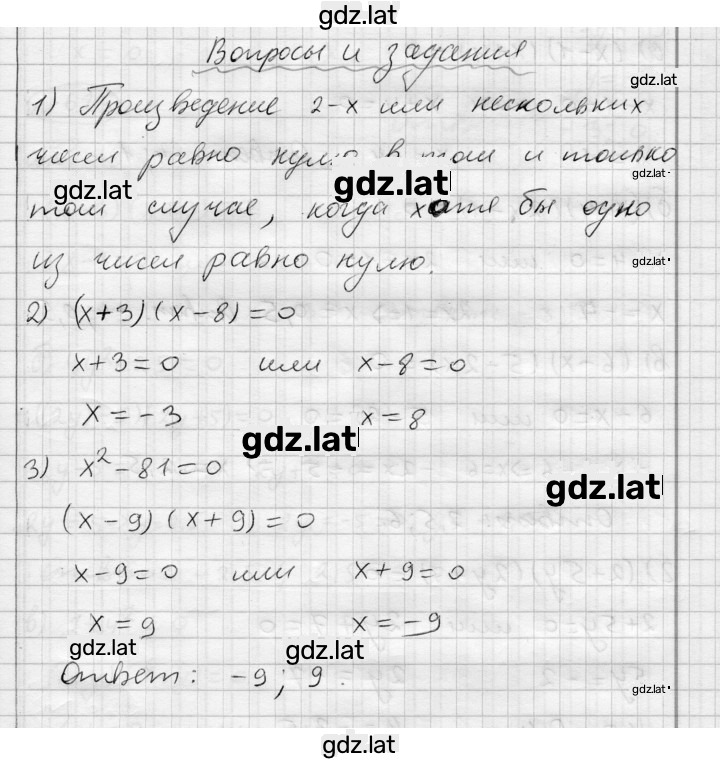 gdz.lat
Вопросы и задания
gdz.lat
1) Произведение 2-х или нескольких
чисел равно нулю в том и только
gdz.lat
gdz.lat
gdz.lat
том случае, когда хотя бы одно
из чисел равно нулю.
gdz.lat
2) (x+3)(x-8)=0
x+3=0 или x-8=0
x=-3 x=8
gdz.lat
3) x²-81=0
gdz.lat
(x-9)(x+9)=0
x-9=0 или x+9=0
x=9 x=-9
gdz.lat
gdz.lat
Ответ: -9; 9.
gdz.lat
gdz.lat